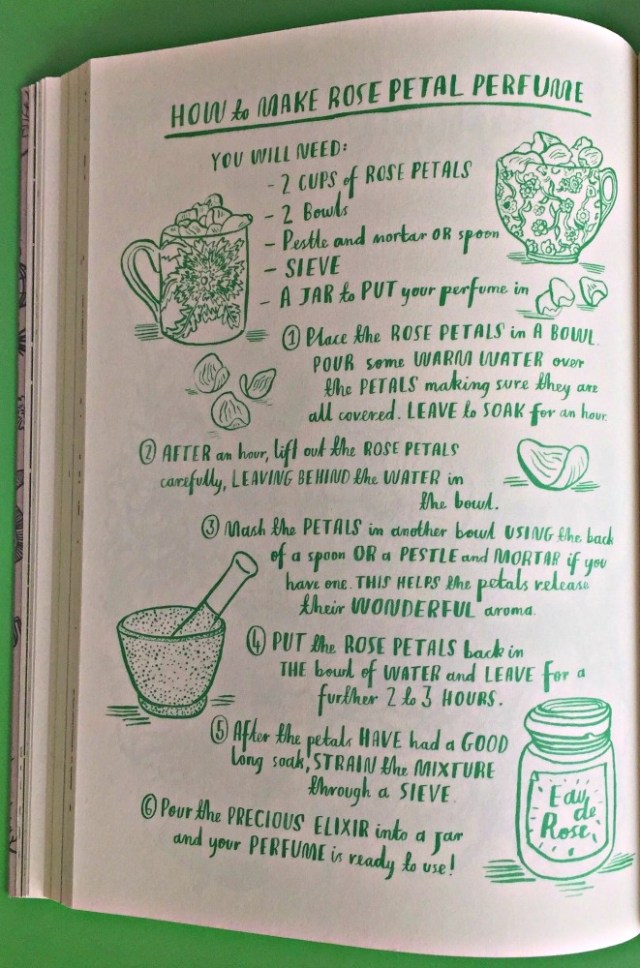 HOW to MAKE ROSE PETAL PERFUME
YOU WILL NEED:
- 2 CUPS of ROSE PETALS
- 2 Bowls
- Pestle and mortar OR spoon
- SIEVE
- A JAR to PUT your perfume in
① Place the ROSE PETALS in A BOWL.
POUR some WARM WATER over
the PETALS making sure they are
all covered. LEAVE to SOAK for an hour.
② AFTER an hour, lift out the ROSE PETALS
carefully, LEAVING BEHIND the WATER in
the bowl.
③ Mash the PETALS in another bowl USING the back
of a spoon OR a PESTLE and MORTAR if you
have one. THIS HELPS the petals release
their WONDERFUL aroma.
④ PUT the ROSE PETALS back in
THE bowl of WATER and LEAVE for a
further 2 to 3 HOURS.
⑤ After the petals HAVE had a GOOD
long soak, STRAIN the MIXTURE
through a SIEVE.
⑥ Pour the PRECIOUS ELIXIR into a jar
and your PERFUME is ready to use!
Eau
de
Rose